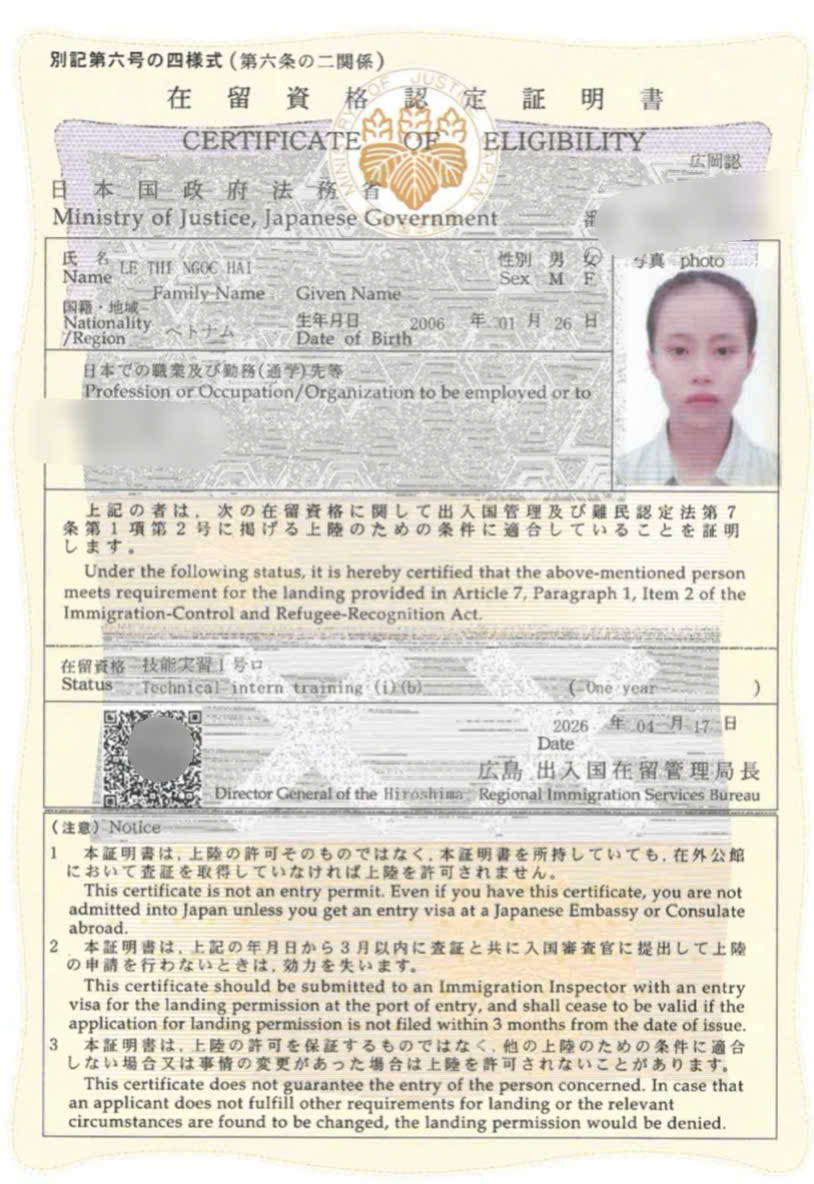 別記第六号の四様式(第六条の二関係)
在留資格認定証明書
CERTIFICATE OF ELIGIBILITY
広岡認
日本国政府法務省
Ministry of Justice, Japanese Government
番
氏名 LE THI NGOC HAI
Name
Family Name Given Name
性別 男 女
Sex M F
写真 photo
国籍・地域
Nationality
/Region
ベトナム
生年月日 2006 年 01 月 26 日
Date of Birth
日本での職業及び勤務(通学)先等
Profession or Occupation/Organization to be employed or to
上記の者は,次の在留資格に関して出入国管理及び難民認定法第7
条第1項第2号に掲げる上陸のための条件に適合していることを証明
します。
Under the following status, it is hereby certified that the above-mentioned person
meets requirement for the landing provided in Article 7, Paragraph 1, Item 2 of the
Immigration-Control and Refugee-Recognition Act.
在留資格 技能実習1号ロ
Status Technical intern training (i)(b) ( One year )
2026 年 04 月 17 日
Date
広島 出入国在留管理局長
Director General of the Hiroshima Regional Immigration Services Bureau
(注意) Notice
1 本証明書は,上陸の許可そのものではなく,本証明書を所持していても,在外公館
において査証を取得していなければ上陸を許可されません。
This certificate is not an entry permit. Even if you have this certificate, you are not
admitted into Japan unless you get an entry visa at a Japanese Embassy or Consulate
abroad.
2 本証明書は,上記の年月日から3月以内に査証と共に入国審査官に提出して上陸
の申請を行わないときは,効力を失います。
This certificate should be submitted to an Immigration Inspector with an entry
visa for the landing permission at the port of entry, and shall cease to be valid if the
application for landing permission is not filed within 3 months from the date of issue.
3 本証明書は,上陸の許可を保証するものではなく,他の上陸のための条件に適合
しない場合又は事情の変更があった場合は上陸を許可されないことがあります。
This certificate does not guarantee the entry of the person concerned. In case that
an applicant does not fulfill other requirements for landing or the relevant
circumstances are found to be changed, the landing permission would be denied.